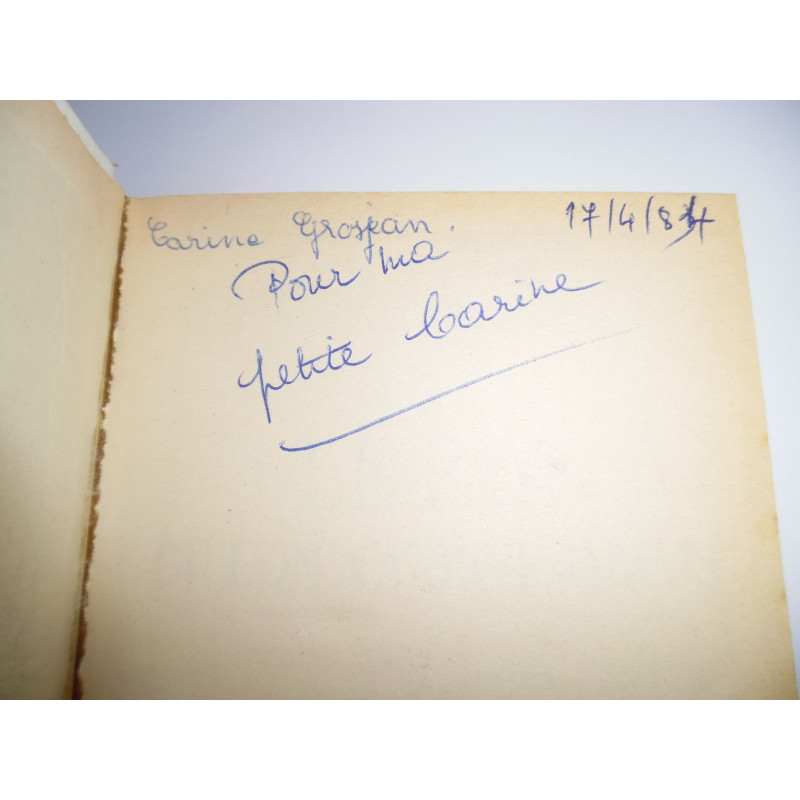 Carine Grosjean. 17/4/84
Pour ma
petite Carine